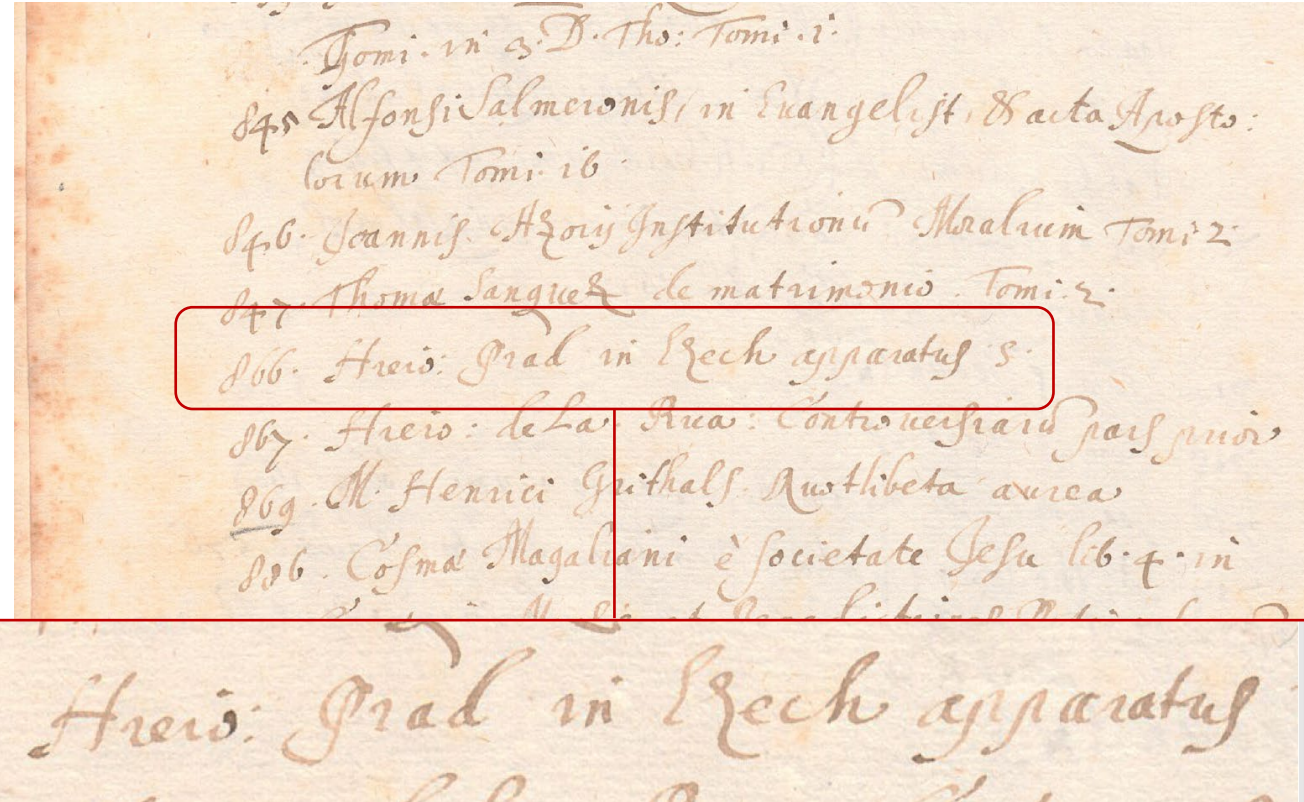 Tomi. in 3. D. Tho: Tomi. 1.
845 Alfonsi Salmeronis, in Euangelist, & acta Aposto:
lorum Tomi. 16
846. Joannis. Azorij Institutionũ Moralium Tomi 2
847. Thomæ Sanquez de matrimonio. Tomi. 2.
866. Hiero: Prad in Ezech apparatus 3.
867. Hiero: de La Rua: Controuersiarũ pars prior
869. M. Henrici Guthals. Quotlibeta aurea
886. Cosmæ Magaliani è societate Jesu lib. 4. in
Hiero: Prad in Ezech apparatus